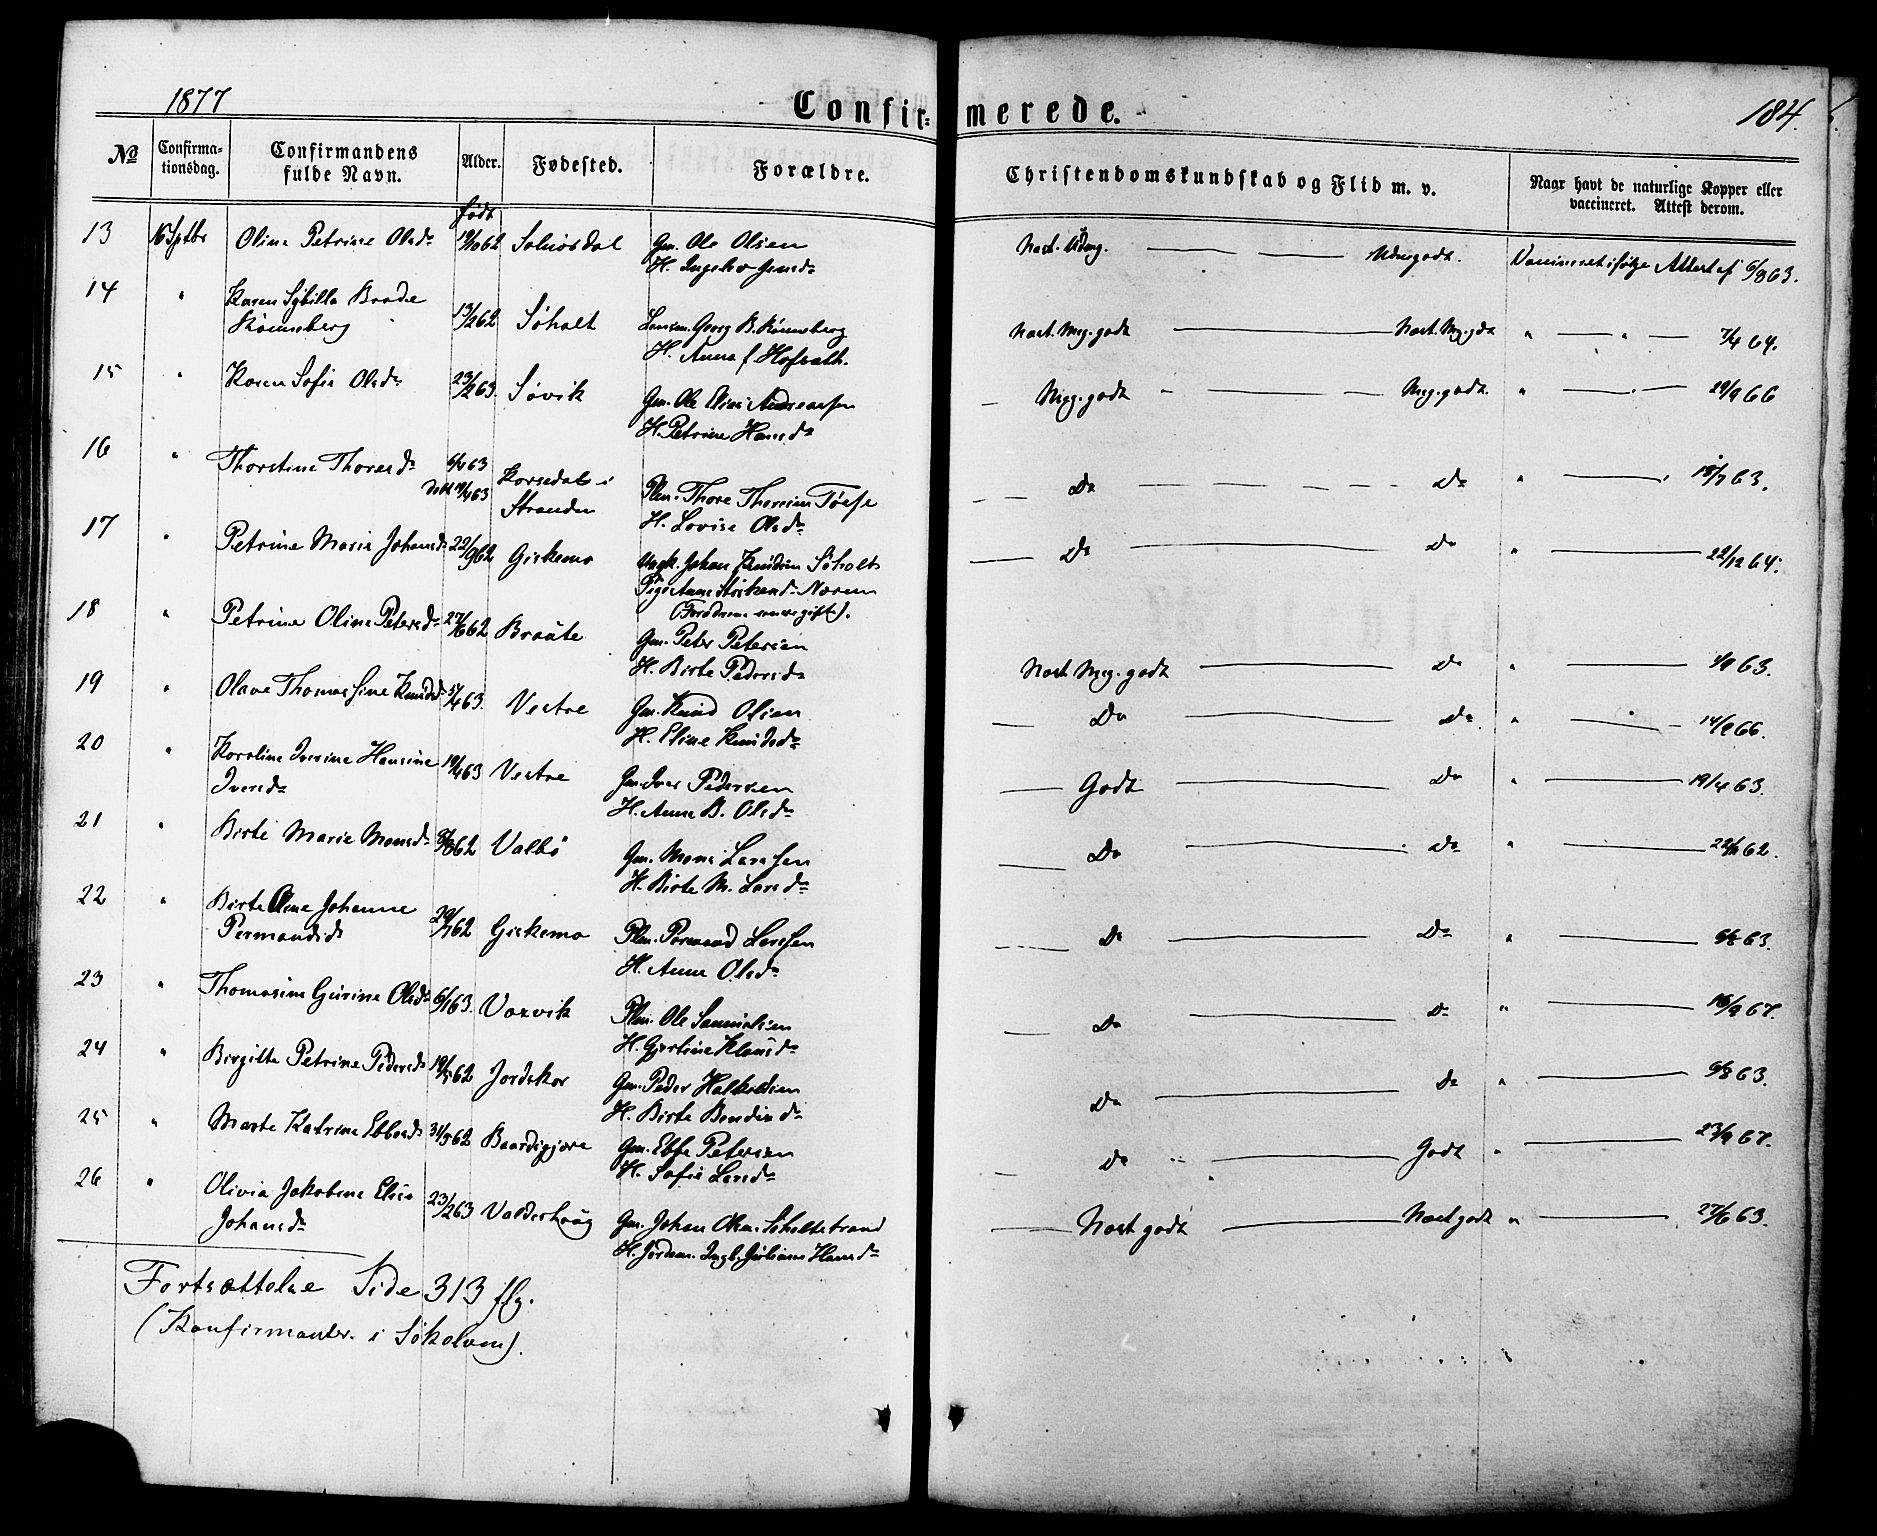 1877
Confir- merede.
184.
No
Confirma-
tionsdag.
Confirmandens
fulde Navn.
Alder.
Fødested.
Forældre.
Christendomskundskab og Flid m. v.
Naar havt de naturlige Kopper eller
vaccineret. Attest derom.
født
13 16 Sptbr Oline Petrine Olsd. 19/10 62 Solnørdal Gm. Ole Olsen
H. Ingebor Jensd. Udmgodt. Vaccineret ifølge Attest af 6/8 63.
14 " Karen Sybilla Brode
Rønneberg 13/2 62 Søholt Lensm. Georg B. Rønneberg
H. Anna f. Hofrath. Næst. Meg. godt — Næst. Mg. gdt " — " — 7/4 64.
15 " Karen Sofie Olsd. 23/2 63. Søvik Gm. Ole Elias Andreassen
H. Petrine Hansd. — Meg. godt — Meg. godt. " — 29/9 66
16 " Thorstine Thoresd. 6/4 63
døbt 19/4 63 Korsedal i
Stranden Plm. Thore Thoresen Tøsse
H. Lovise Olsd. — Do — Do " — 18/7 63.
17 " Petrine Marie Johansd. 22/9 62 Giskemo Ungk. Johan Knudsen Søholt
Pige Anne Nøren
(Forældrene senere gift).
— Do — Do " — 22/12 64.
18 " Petrine Oline Petersd. 27/6 62 Braute Gm. Peter Petersen
H. Birte Pedersd. Næst Meg. godt — Do " — 1/9 63.
19 " Olave Thomassine Knudsd. 5/4 63. Vestre Gm. Knud Olsen
H. Eline Knudsd. — Do — Do " — 14/9 66.
20 " Karoline Iverine Hansine
Iversd. 19/4 63 Vestre Gm. Iver Pedersen
H. Anne B. Olsd. — Godt — Do " — 19/4 63.
21 " Birte Marie Monsd. 8/8 62 Valbø Gm. Mons Larssen
H. Birte M. Larsd. — Do — Do " — 22/11 62.
22 " Birte Oline Johanne
Permandsd. 29/7 62 Giskemo Plm. Permand Larssen
H. Anne Olsd. — Do — Do " — 6/8 63.
23 " Thomasine Gurine Olsd. 6/1 63. Vaxvik Plm. Ole Samuelsen
H. Gjertine Klausd. — Do — Do " — 16/9 67.
24 " Birgitte Petrine Pedersd. 19/5 62 Jordskor Gm. Peder Halkildsen
H. Birte Bendixd. — Do — Do " — 6/8 63.
25 " Marte Katrine Ebbesd. 31/5 62 Baardsgjøre Gm. Ebbe Petersen
H. Sofie Larsd. — Do — Godt " — 23/9 67.
26 " Olivia Jakobine Elise
Johansd. 23/2 63 Valderhaug Gm. Johan Olsen Søholtstrand
H. Jordm. Ingb. Juliane Hansd. — Næst godt — Næst godt " — 27/6 63.
Fortsættelse Side 313 flg.
(Konfirmanter i Søkelven).